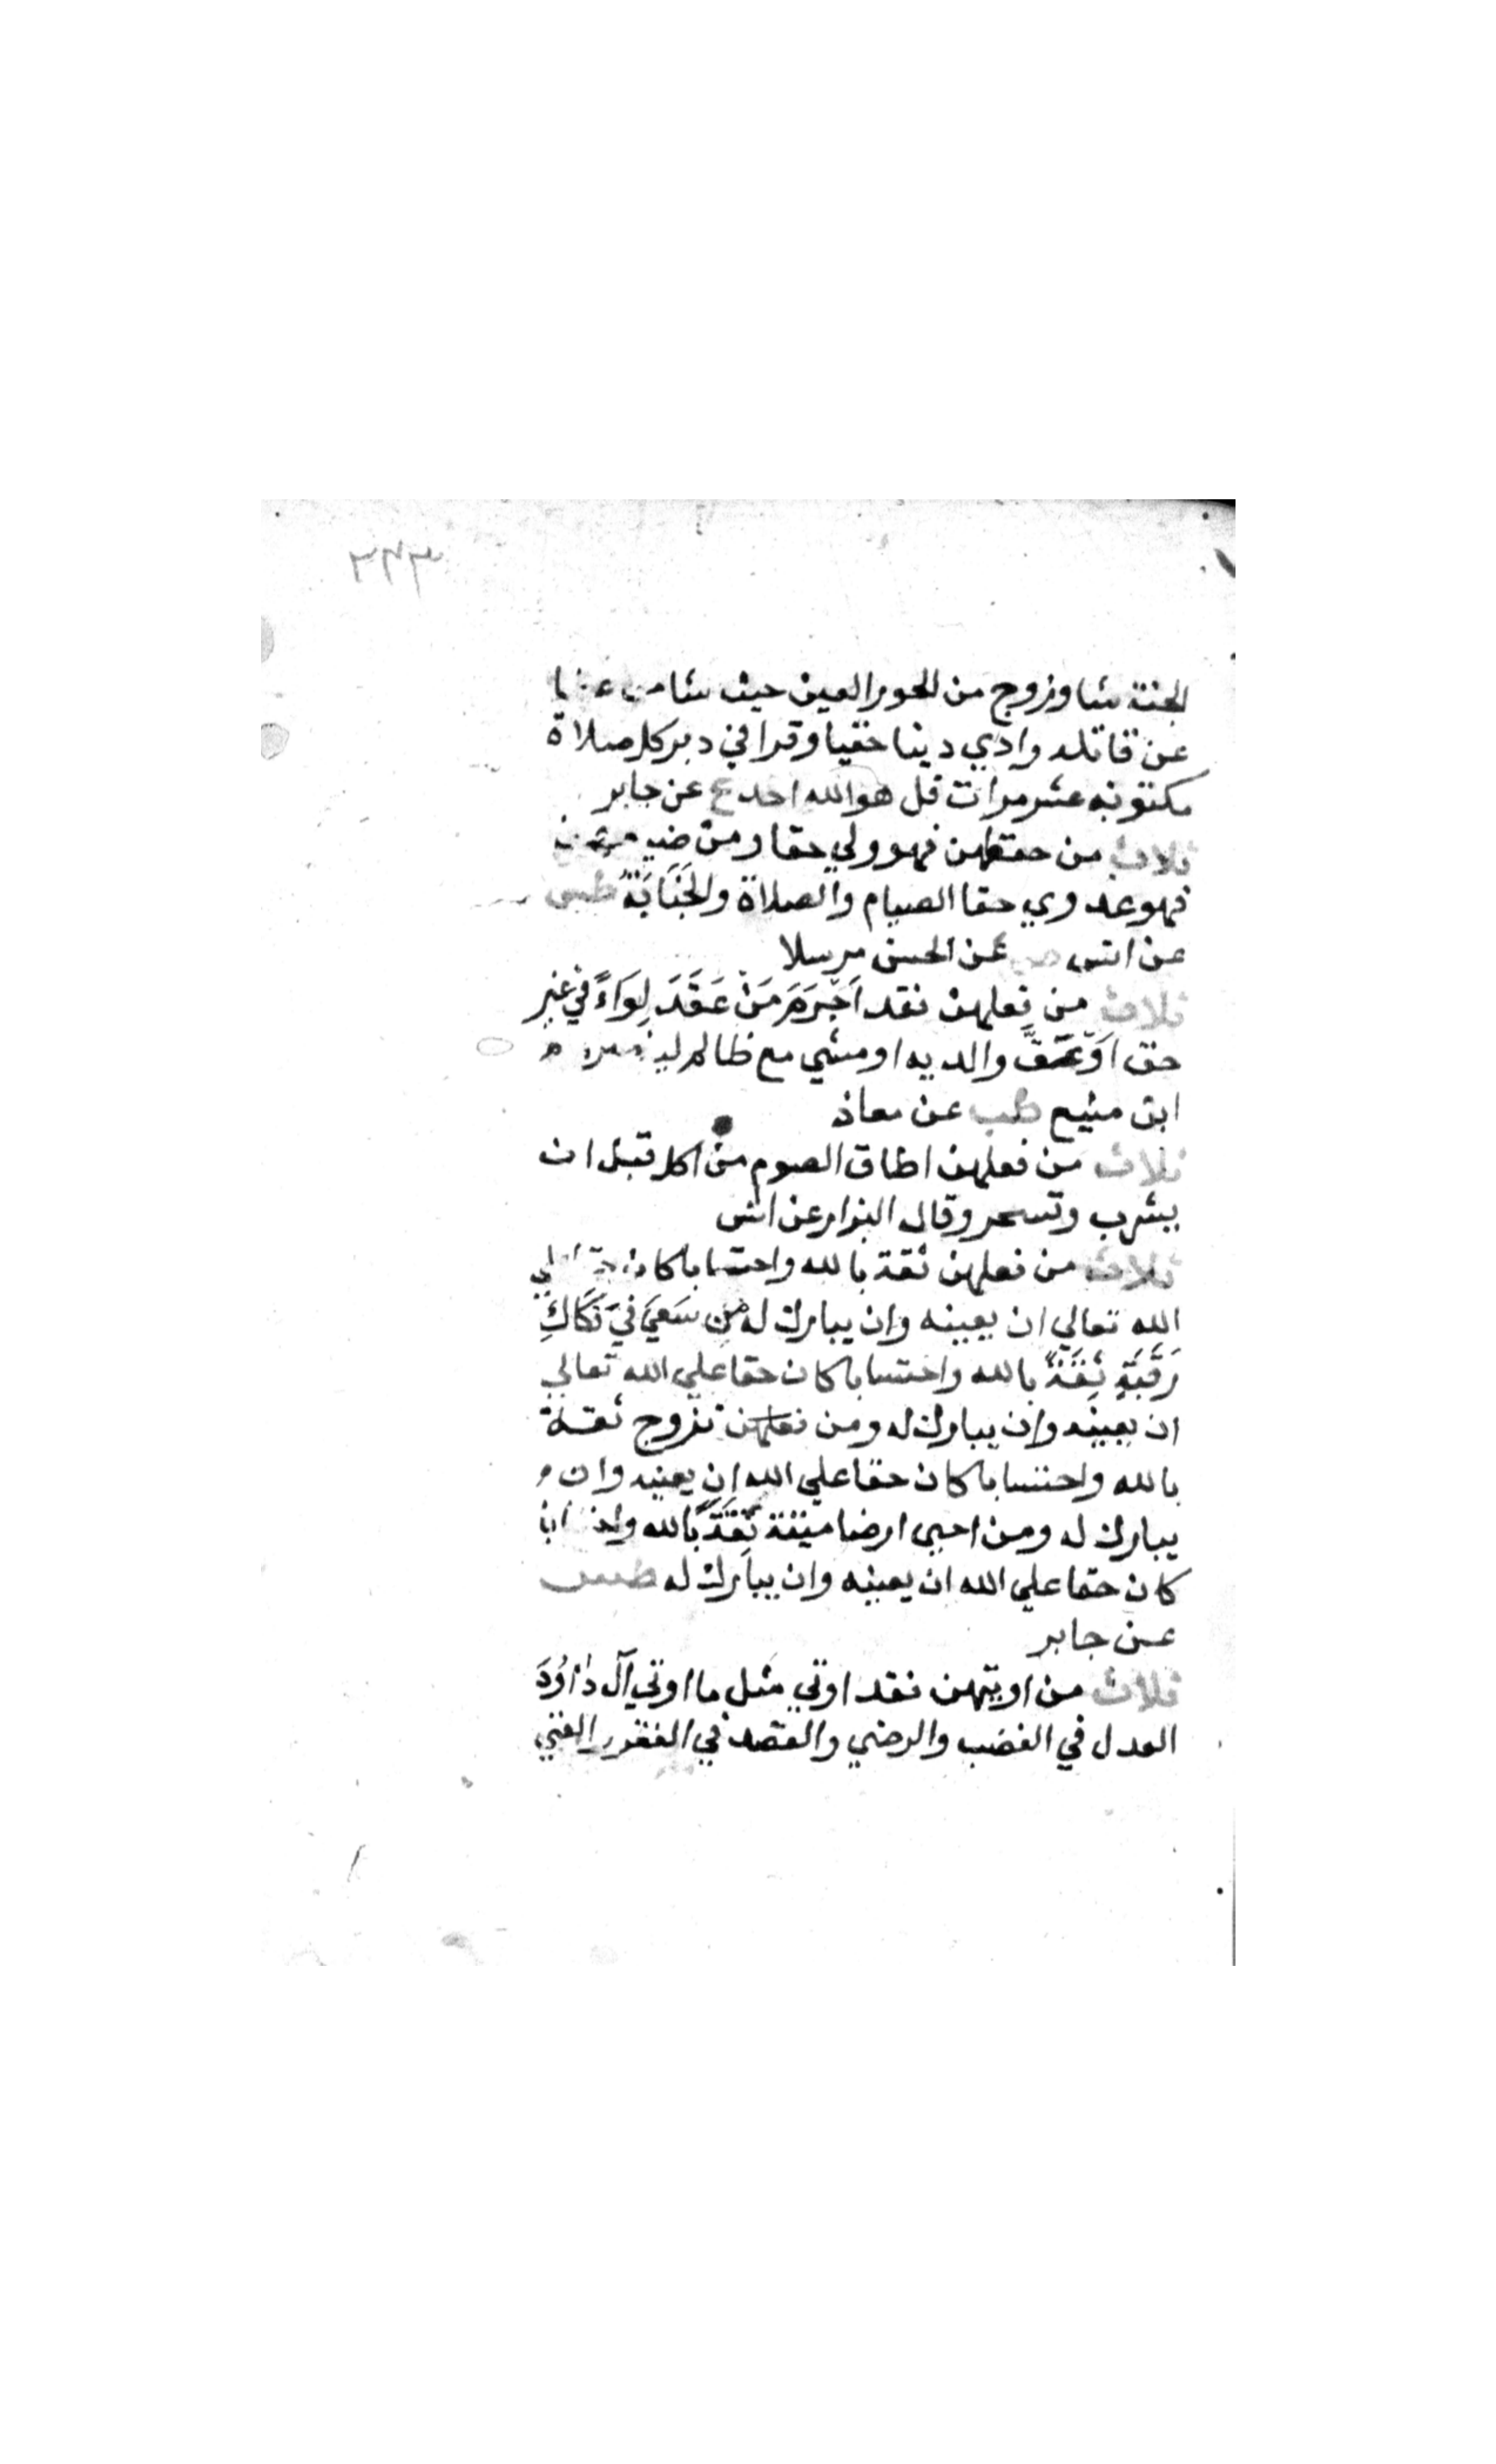 ٢٢٣
الجنة شا وزوج من الحور العين حيث شا من عفا
عن قاتله وادي دينا خفيا وقرا في دبر كل صلاة
مكتوبة عشر مرات قل هو الله احد ع عن جابر
ثلاث من حفظهن فهو ولي حقا ومن ضيعهن
فهو عدوي حقا الصيام والصلاة والجَنَابَةُ طس
عن انس عن الحسن مرسلا
ثلاث من فعلهن فقد اَجْرَمَ مَنْ عَقَدَ لِوَاءً في غير
حق اَوْ عَقَّ والديه او مشي مع ظالم لينصره
ابن منيع طب عن معاذ
ثلاث من فعلهن اطاق الصوم من اكل قبل ان
يشرب وتسحر وقال البزار عن انس
ثلاث من فعلهن ثقة بالله واحتسابا كان حقا علي
الله تعالي ان يعينه وان يبارك له من سَعَي في فَكَاكِ
رَقَبَةٍ ثِقَةً بالله واحتسابا كان حقا علي الله تعالي
ان يعينه وان يبارك له ومن فعلهن تزوج ثقة
بالله واحتسابا كان حقا علي الله ان يعينه وان
يبارك له ومن احيى ارضا ميتة ثِقَةً بالله واحتسابا
كان حقا علي الله ان يعينه وان يبارك له طس
عن جابر
ثلاث من اوتيهن فقد اوتي مثل ما اوتي آل دَاوُدَ
العدل في الغضب والرضي والقصد في الفقر والغني